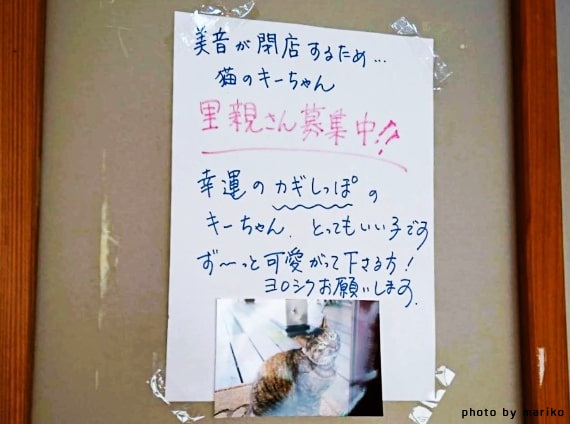 美音が閉店するため…
猫のキーちゃん
里親さん募集中!!
幸運のカギしっぽの
キーちゃん、とってもいい子です
ず〜っと可愛がって下さる方!
ヨロシクお願いします.
photo by mariko